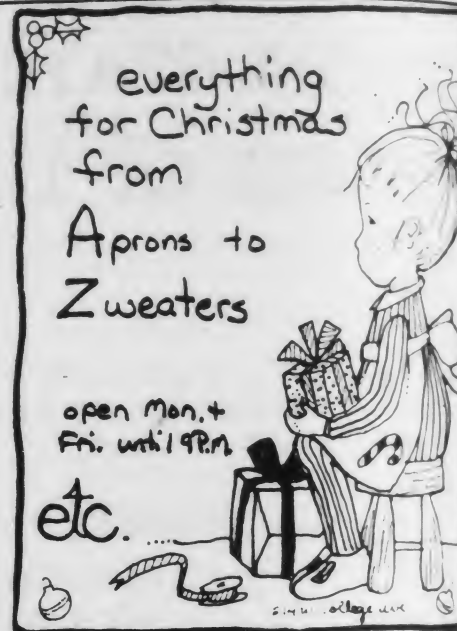 everything
for Christmas
from
Aprons to
Zweaters
open Mon. +
Fri. until 9P.M.
etc.
W. College Ave